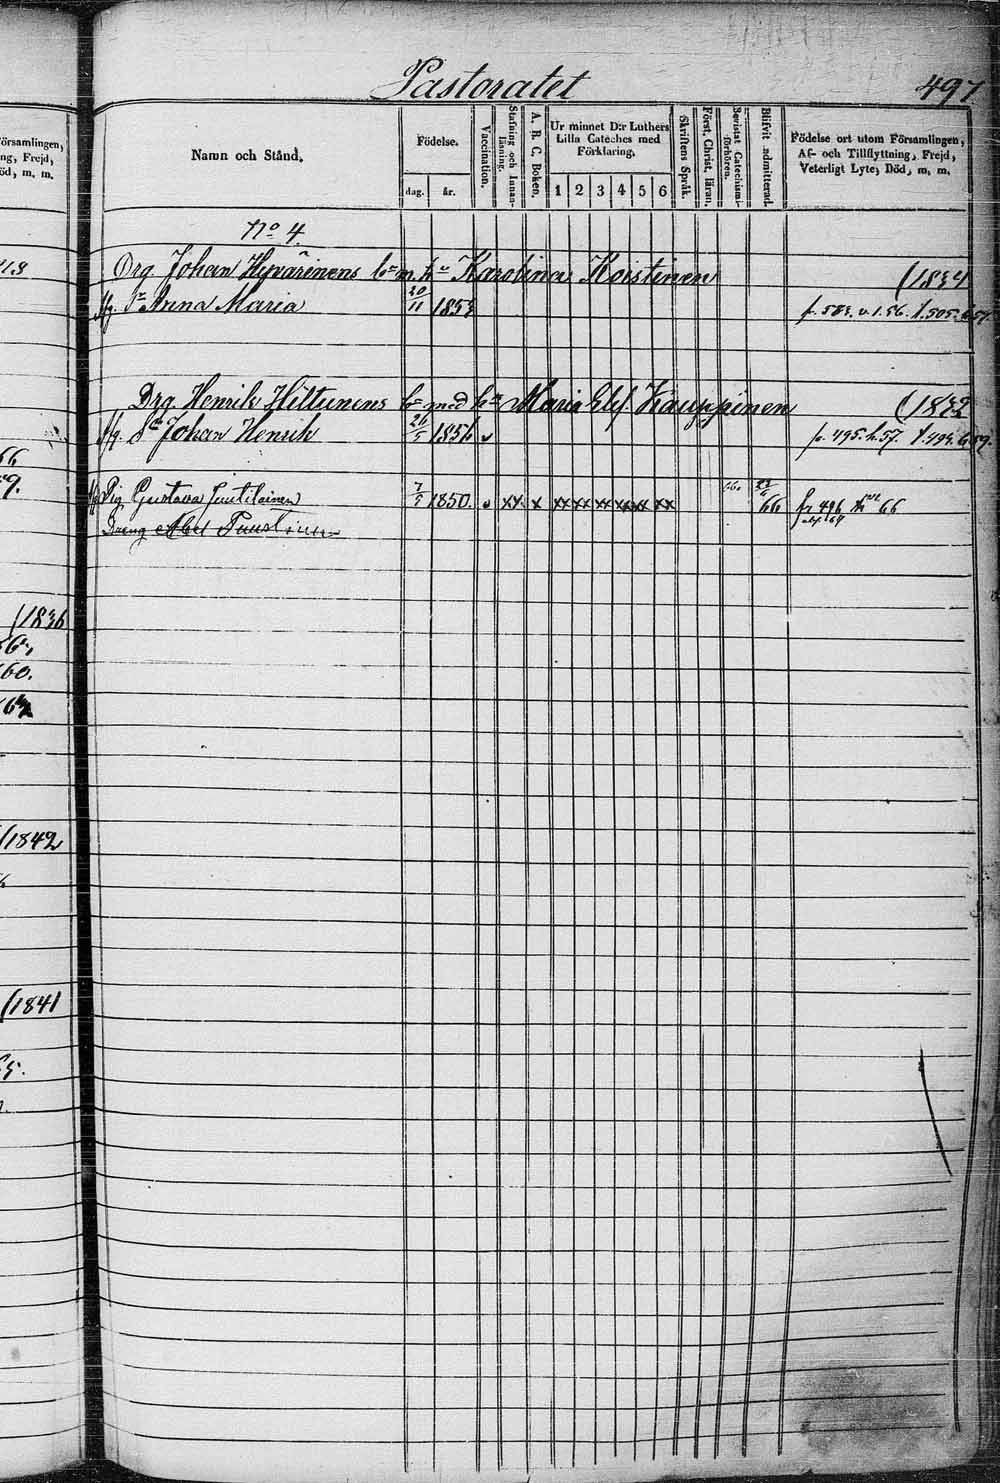 Pastoratet 497
örsamlingen,
ng, Frejd,
öd, m. m.
Namn och Stånd.
Födelse.
dag. år.
Vaccination.
Stafning och Innan-
läsning.
A. B. C. Boken.
Ur minnet D:r Luthers
Lilla Cateches med
Förklaring.
1 2 3 4 5 6
Skriftens Språk.
Först. Christ. läran.
Bevistat Catechismi-
förhören.
Blifvit admitterad.
Födelse ort utom Församlingen,
Af- och Tillflyttning, Frejd,
Veterligt Lyte, Död, m. m.
No 4
Drg Johan Hyvärinens b:n m. h:u Karolina Koistinen (1834
Anna Maria 20/11 1853 fr. 583. v. 1. 56. t. 505.
Drg. Henrik Hiltunens b:n med h:n Maria Elis. Kauppinen (1832
Johan Henrik 1856 v fr. 495. h. 57. t. 499. 59.
Pig Gustava Juutilainen 7/5 1850. v xx x xx xx xx xx xx xx 66 fr 496 66
Dreng Abel Puustinen
(1836
60.
(1842
(1841